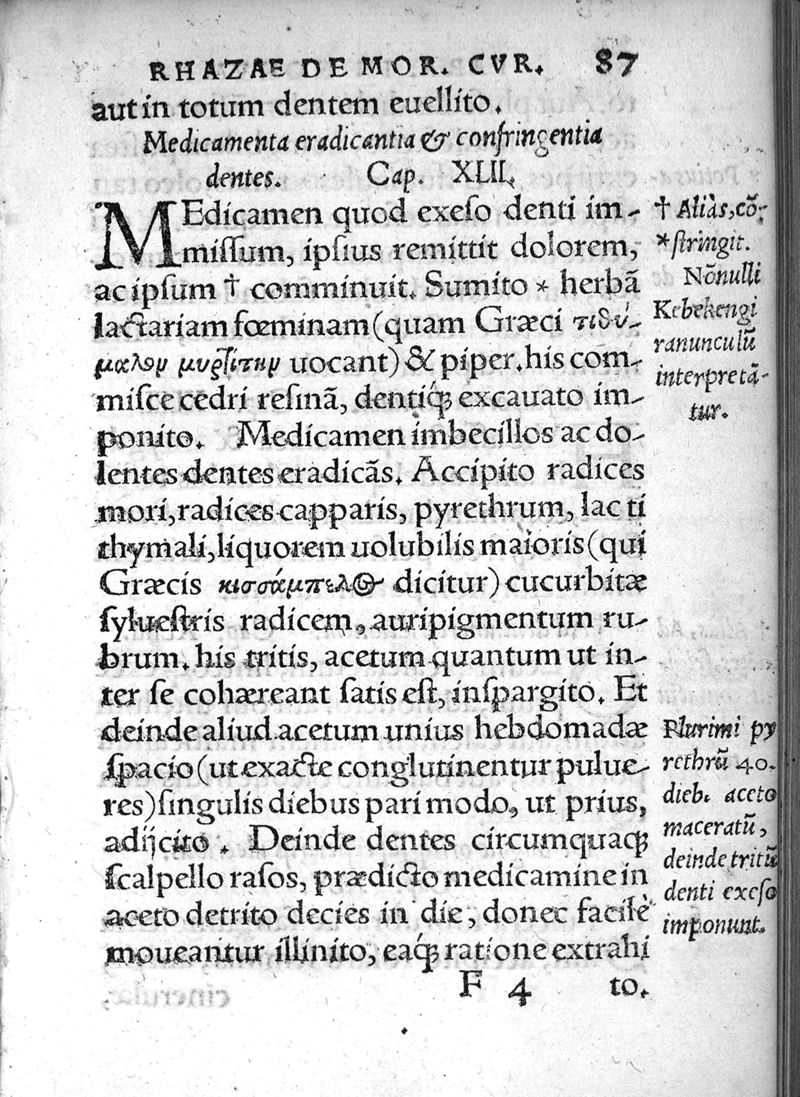 RHAZAE DE MOR. CVR. 87
aut in totum dentem euellito.
Medicamenta eradicantia & confringentia
dentes. Cap. XLII.
MEdicamen quod exeſo denti im-
miſſum, ipſius remittit dolorem,
ac ipſum † comminuit. Sumito * herbã
lactariam fœminam (quam Græci τιθύ-
μαλομ μυρσίτημ uocant) & piper. his com-
miſce cedri reſinã, dentiq́; excauato im-
ponito. Medicamen imbecillos ac do-
lentes dentes eradicãs. Accipito radices
mori, radices capparis, pyrethrum, lac ti
thymali, liquorem uolubilis maioris (qui
Græcis κισσάμπελος dicitur) cucurbitæ
ſylueſtris radicem, auripigmentum ru-
brum. his tritis, acetum quantum ut in-
ter ſe cohæreant ſatis eſt, inſpargito. Et
deinde aliud acetum unius hebdomadæ
ſpacio (ut exacte conglutinentur pulue-
res) ſingulis diebus pari modo, ut prius,
adijcito. Deinde dentes circumquaq;
ſcalpello raſos, prædicto medicamine in
aceto detrito decies in die, donec facilè
moueantur illinito, eaq́; ratione extrahi
F 4 to.
† Aliàs, cõ-
* ſtringit.
Nõnulli
Kebekengi
ranunculũ
interpretã-
tur.
Plurimi py
rethrũ 40.
dieb. aceto
maceratũ,
deinde tritũ
denti exeſo
imponunt.